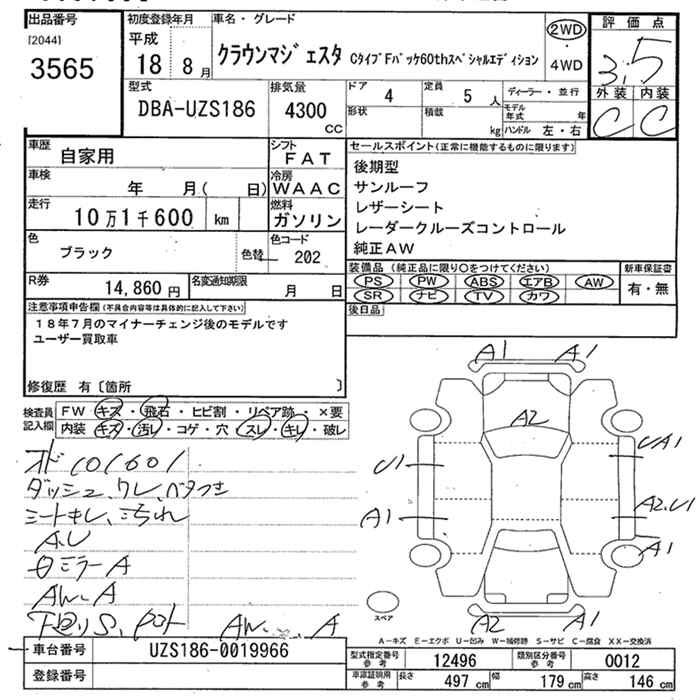 出品番号
[2044]
3565
初度登録年月
平成
18 8月
車名・グレード
クラウンマジェスタ CタイプFパッケ60thスペシャルエディション
2WD
・
4WD
評価点
3.5
外装 内装
C C
型式
DBA-UZS186
排気量
4300
cc
ドア
4
定員
5人
形状
積載
kg
ディーラー・並行
モデル年式 年
ハンドル 左・右
車歴
自家用
シフト
FAT
車検
年 月( 日)
冷房
WAAC
走行
10万1千600 km
燃料
ガソリン
色
ブラック
色替
色コード
202
R券
14,860円
名変通知期限
月 日
セールスポイント(正常に機能するものに限ります)
後期型
サンルーフ
レザーシート
レーダークルーズコントロール
純正AW
装備品(純正品に限り○をつけてください)
PS PW ABS エアB AW
SR ナビ TV カワ
新車保証書
有・無
後日品
注意事項申告欄(不具合内容等は具体的に記入して下さい)
18年7月のマイナーチェンジ後のモデルです
ユーザー買取車
修復歴 有〔箇所 〕
検査員記入欄
FW キズ・飛石・ヒビ割・リペア跡・×要
内装 キズ・汚レ・コゲ・穴・スレ・キレ・破レ
オド101601
ダッシュ、ワレ、ベタつき
シートキレ、汚れ
A.U
ミラーA
AW-A
下廻りS
AW A
A1 A1
A2
U1
UA1
A1
A2.U1
A1
A2 A1
スペア
A-キズ E-エクボ U-凹み W-補修跡 S-サビ C-腐食 XX-交換済
車台番号
UZS186-0019966
登録番号
型式指定番号
参考
12496
類別区分番号
参考
0012
車庫証明用
参考
長さ 497cm 幅 179cm 高さ 146cm